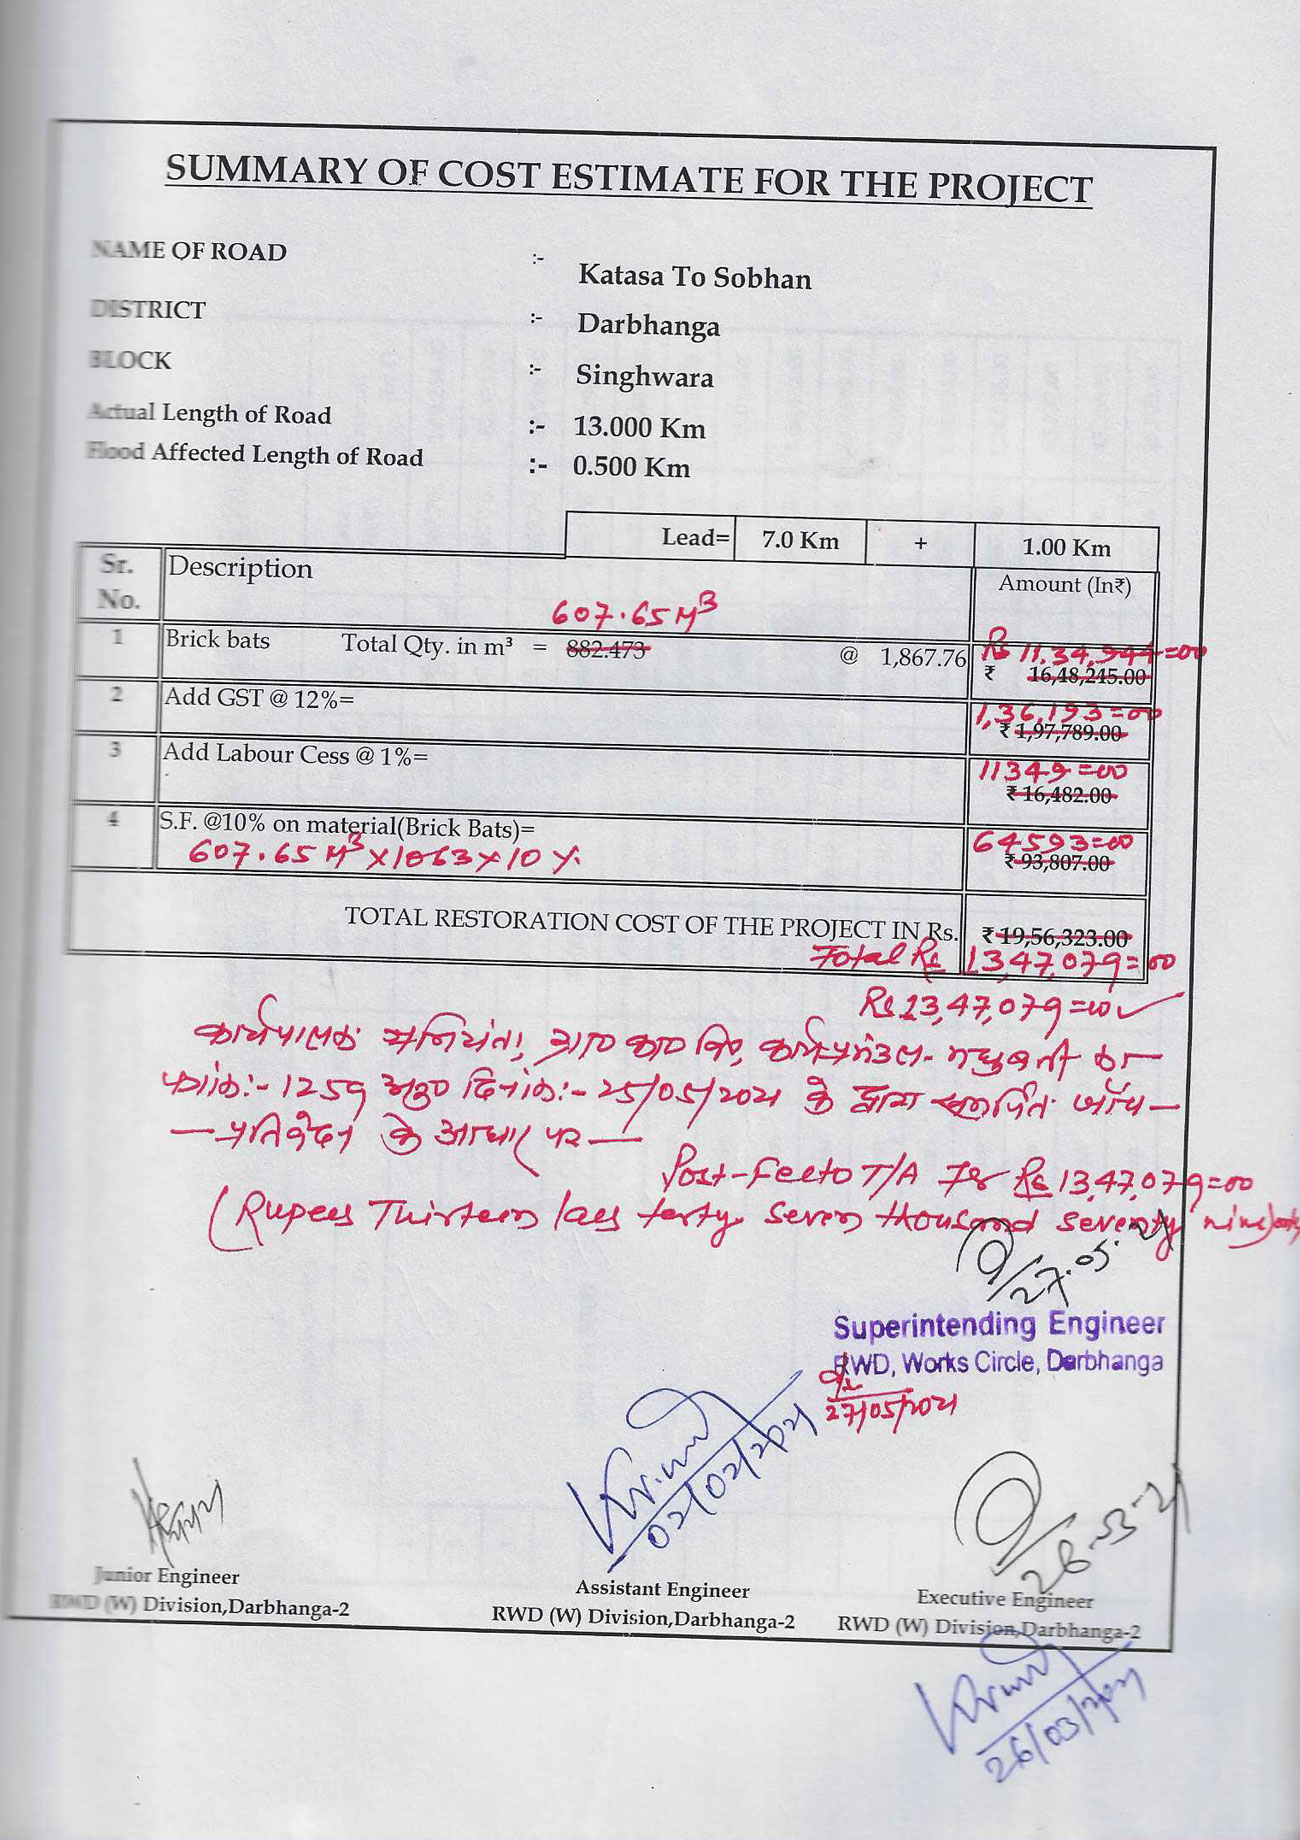 SUMMARY OF COST ESTIMATE FOR THE PROJECT
NAME OF ROAD :- Katasa To Sobhan
DISTRICT :- Darbhanga
BLOCK :- Singhwara
Actual Length of Road :- 13.000 Km
Flood Affected Length of Road :- 0.500 Km
Lead= 7.0 Km + 1.00 Km
Sr. No. Description Amount (In₹)
607.65 M³
1 Brick bats Total Qty. in m³ = 882.473 @ 1,867.76 Rs 11,34,944=00
₹ 16,48,245.00
2 Add GST @ 12%= 1,36,193=00
₹ 1,97,789.00
3 Add Labour Cess @ 1%= 11349=00
₹ 16,482.00
4 S.F. @10% on material(Brick Bats)= 64593=00
607.65 M³ x 1063 x 10 % ₹ 93,807.00
TOTAL RESTORATION COST OF THE PROJECT IN Rs. ₹ 19,56,323.00
Total Rs 13,47,079=00
Rs 13,47,079=00
कार्यपालक अभियंता, ग्रा० का० वि०, कार्य प्रमंडल- मधुबनी का
पत्रांक:- 1259 अनु० दिनांक:- 25/05/2021 के द्वारा समर्पित जाँच
प्रतिवेदन के आधार पर
Post-Fecto T/A for Rs 13,47,079=00
(Rupees Thirteen lacs forty seven thousand seventy nine) only
27.05.21
Superintending Engineer
RWD, Works Circle, Darbhanga
27/05/2021
02/02/2021
26-03-21
Junior Engineer
RWD (W) Division,Darbhanga-2
Assistant Engineer
RWD (W) Division,Darbhanga-2
Executive Engineer
RWD (W) Division,Darbhanga-2
26/03/2021